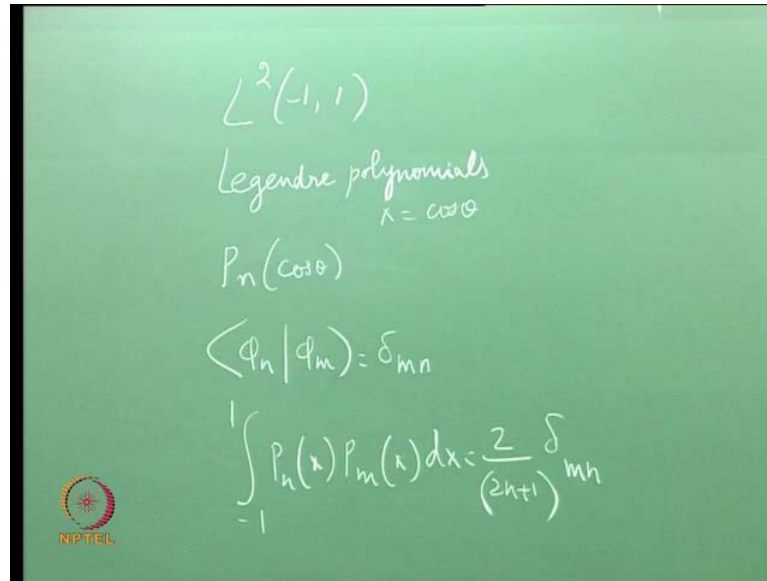 L²(-1, 1)
Legendre polynomials
x = cosθ
Pₙ(cosθ)
⟨φₙ|φₘ) = δₘₙ
∫₋₁¹ Pₙ(x) Pₘ(x) dx = 2/(2n+1) δₘₙ
NPTEL